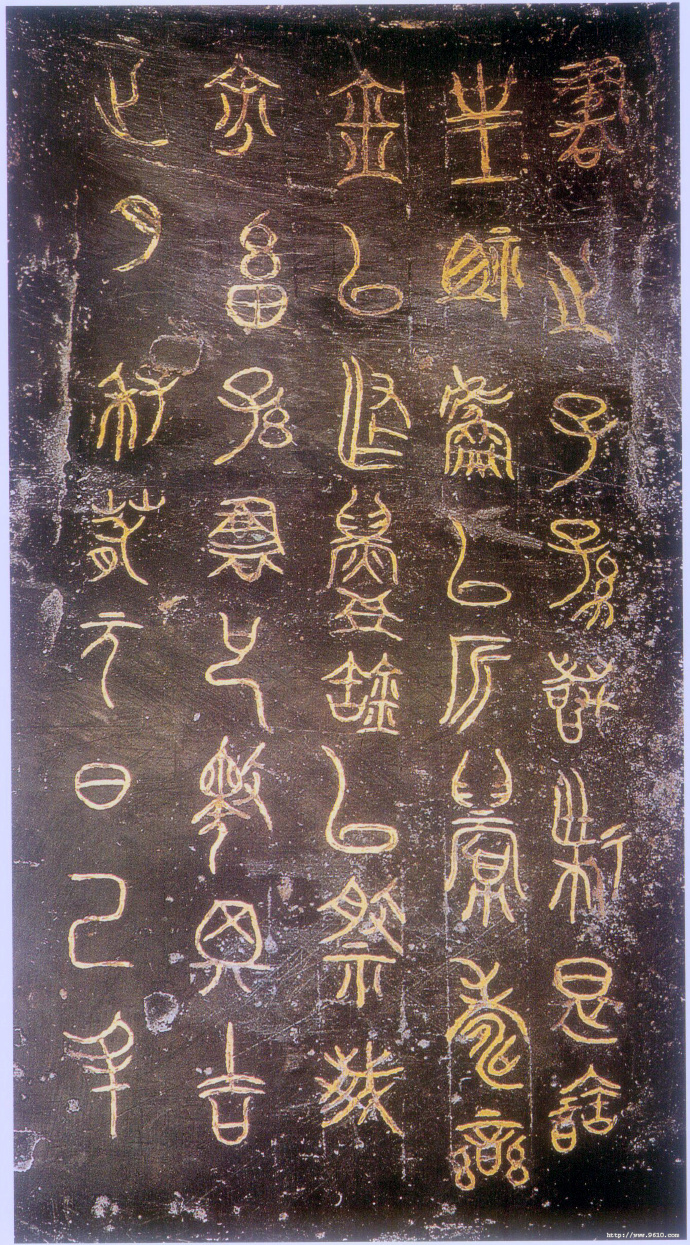 正月季春元日己丑
余畜孫書已擇其吉
金以作鑄缶以祭我
皇祖虞以祈眉壽欒
書之子孫萬世是寶
http://www.9610.com